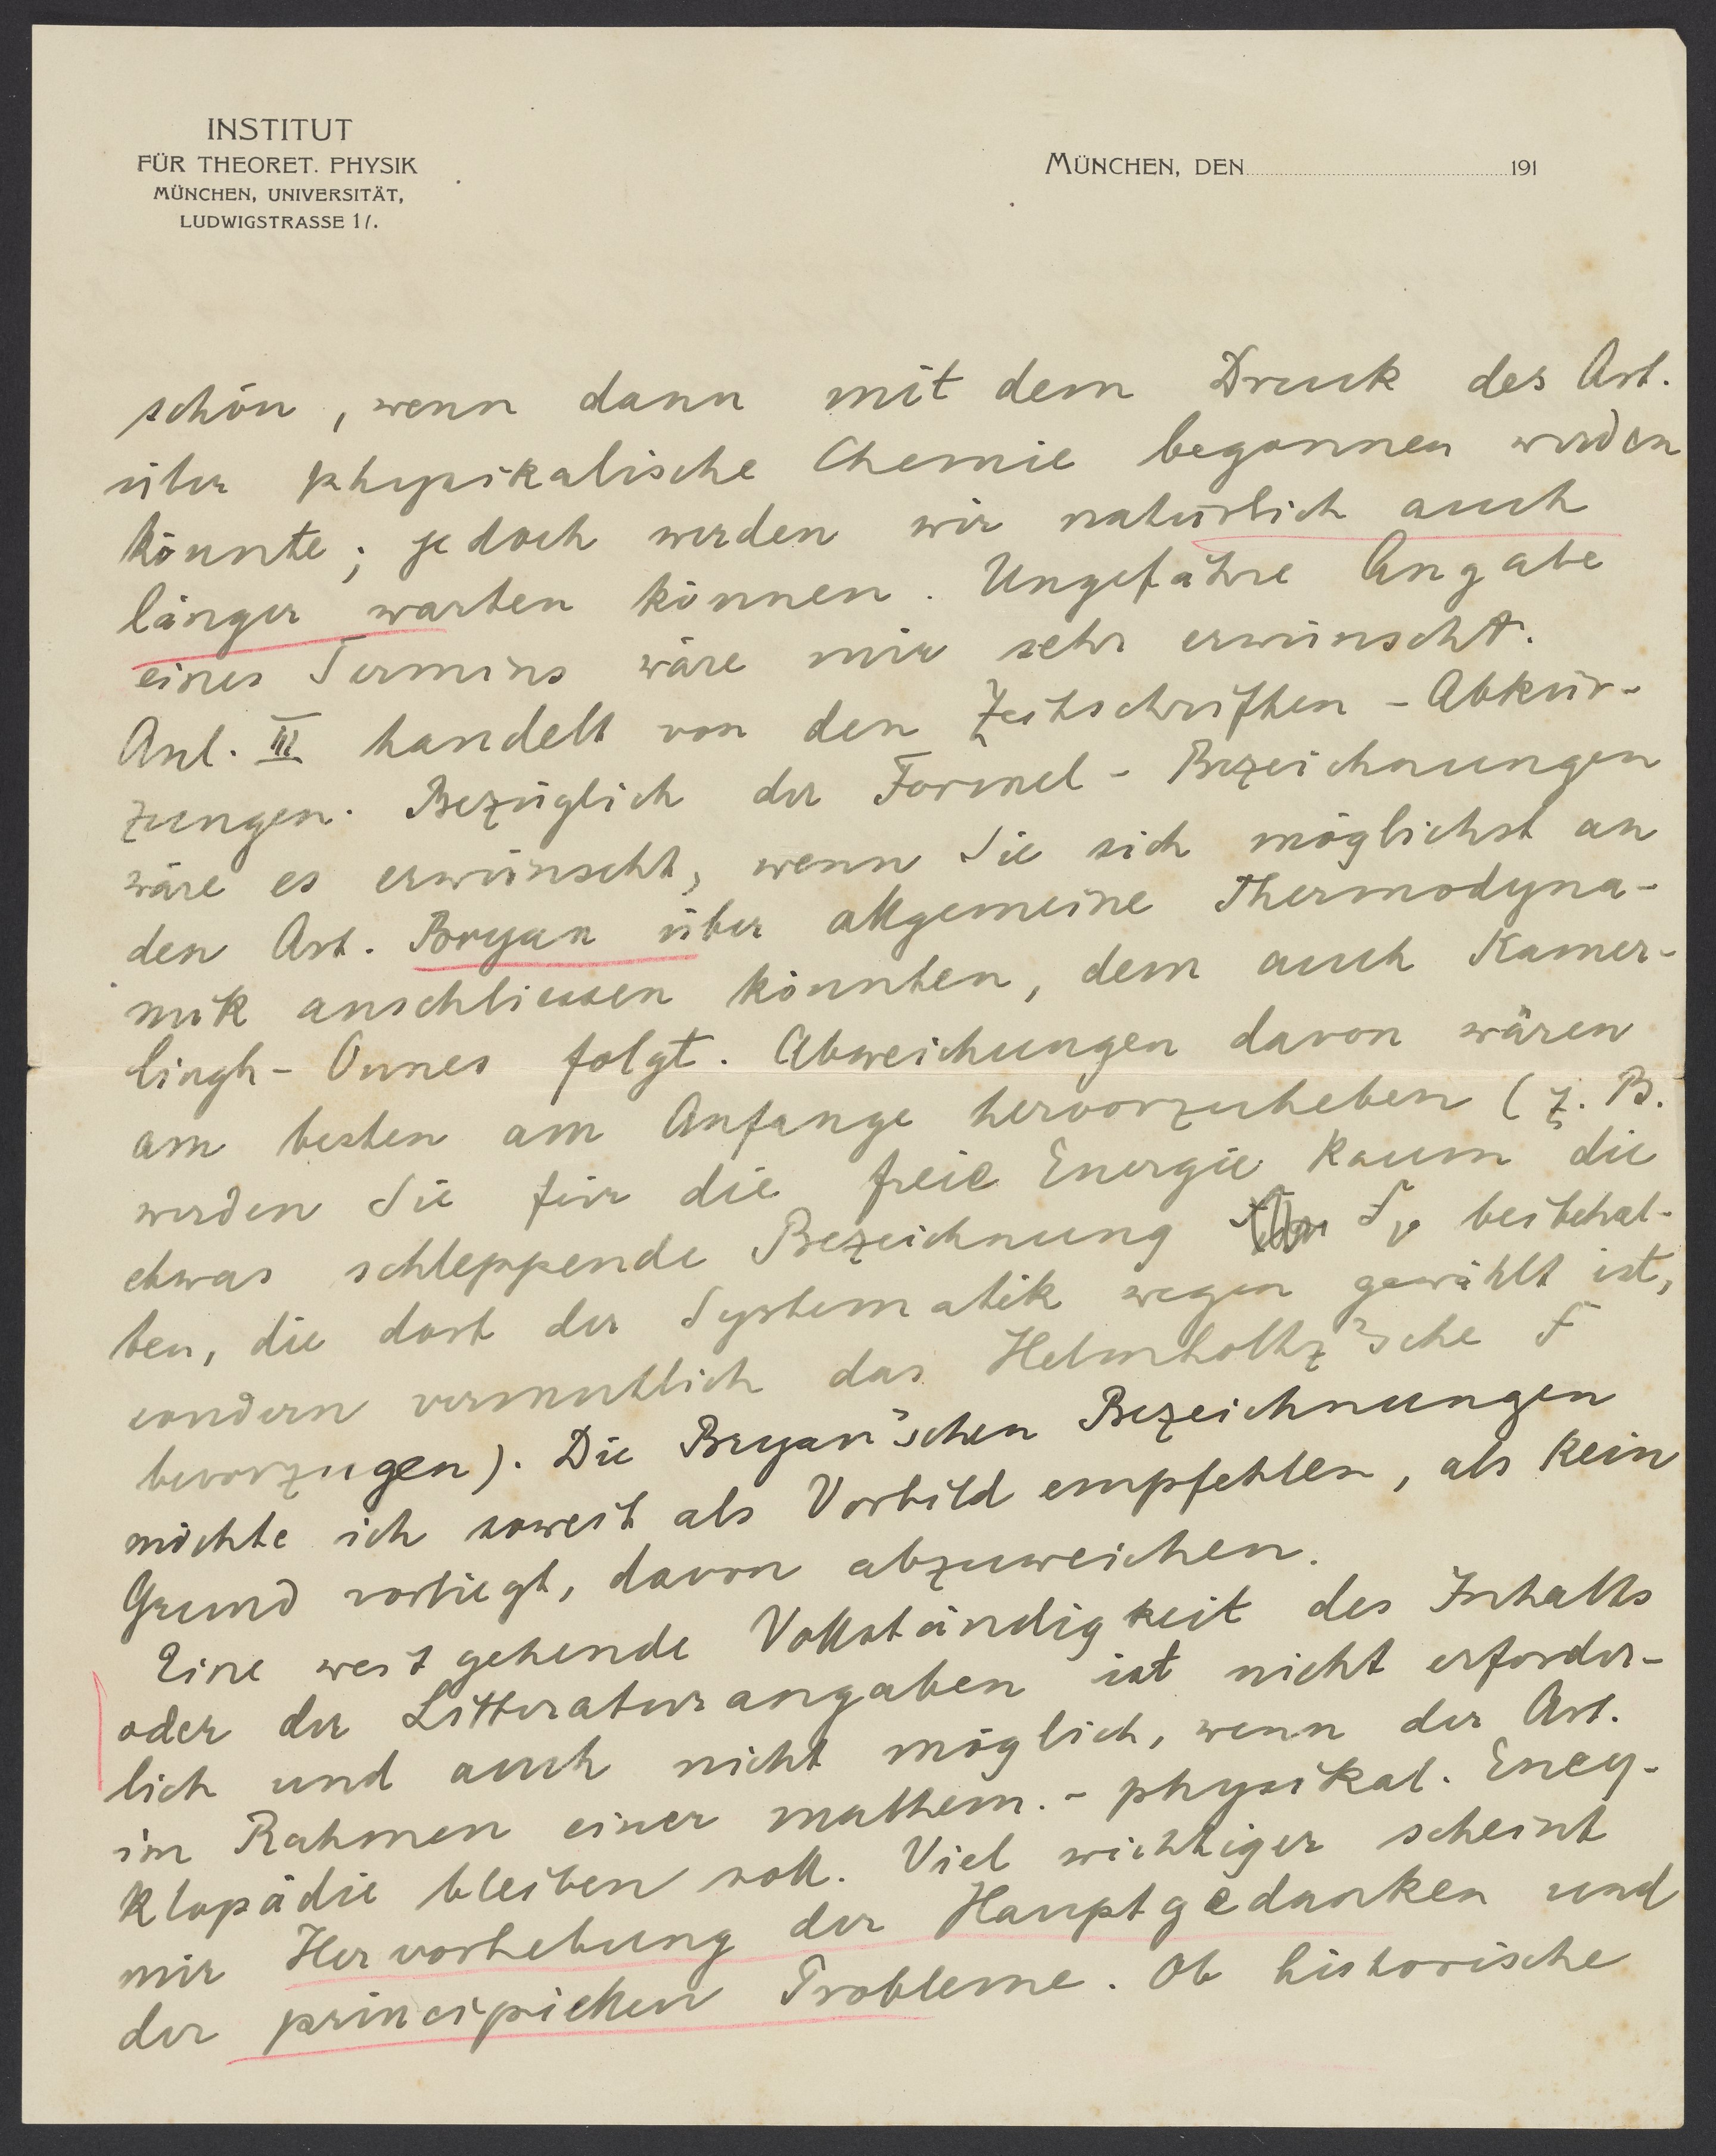 INSTITUT
FÜR THEORET. PHYSIK
MÜNCHEN, UNIVERSITÄT,
LUDWIGSTRASSE 17.
MÜNCHEN, DEN 191
schön, wenn dann mit dem Druck des Art.
über physikalische Chemie begonnen werden
könnte; jedoch werden wir natürlich auch
länger warten können. Ungefähre Angabe
eines Termins wäre mir sehr erwünscht.
Anl. III handelt von den Zeitschriften-Abkür-
zungen. Bezüglich der Formel-Bezeichnungen
wäre es erwünscht, wenn Sie sich möglichst an
den Art. Bryan über allgemeine Thermodyna-
mik anschliessen könnten, dem auch Kamer-
lingh-Onnes folgt. Abweichungen davon wären
am besten am Anfange hervorzuheben (z. B.
werden Sie für die freie Energie kaum die
etwas schleppende Bezeichnung beibehal-
ten, die dort der Systematik wegen gewählt ist,
sondern vermutlich das Helmholtz'sche F
bevorzugen). Die Bryan'schen Bezeichnungen
möchte ich soweit als Vorbild empfehlen, als kein
Grund vorliegt, davon abzuweichen.
Eine weitgehende Vollständigkeit des Inhalts
oder der Litteraturangaben ist nicht erforder-
lich und auch nicht möglich, wenn der Art.
im Rahmen einer mathem.-physikal. Ency-
klopädie bleiben soll. Viel wichtiger scheint
mir Hervorhebung der Hauptgedanken und
der principiellen Probleme. Ob historische